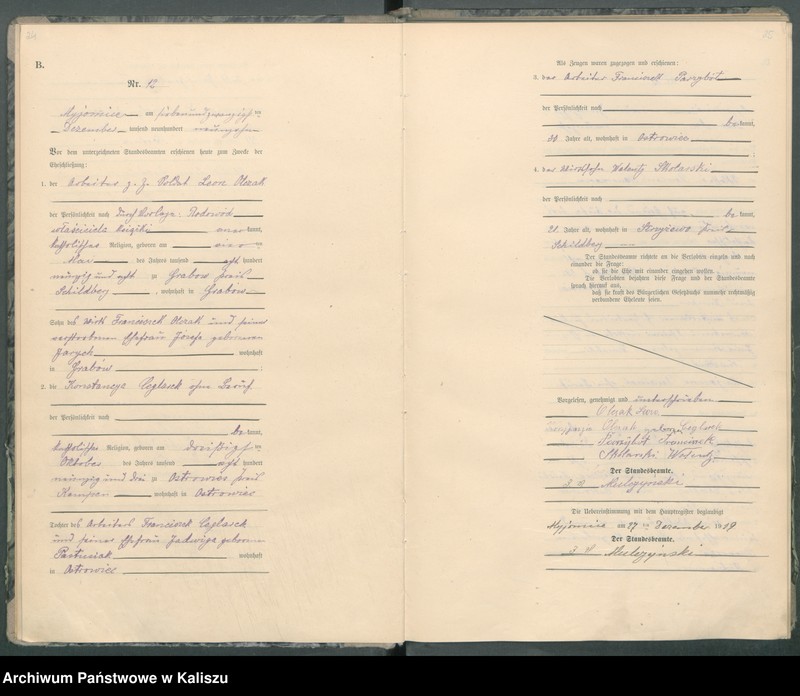 B.
Nr. 12
Myjomice am siebenundzwanzigsten
Dezember tausend neunhundert neunzehn
Vor dem unterzeichneten Standesbeamten erschienen heute zum Zwecke der
Eheschließung:
1. der Arbeiter z. Z. Soldat Leon Olszak
der Persönlichkeit nach durch Vorlage: Rodowód
właściciela książki anerkannt,
katholischer Religion, geboren am
des Jahres tausend acht hundert
neunzig und acht zu Grabow Kreis
Schildberg, wohnhaft in Grabow
Sohn des Wirt Franciszek Olszak und seiner
verstorbenen Ehefrau Józefa geborenen
Jarych wohnhaft
in Grabów ;
2. die Konstancya Ceglarek ohne Beruf
der Persönlichkeit nach
bekannt,
katholischer Religion, geboren am dreißigsten
Oktober des Jahres tausend acht hundert
neunzig und drei zu Ostrowiec Kreis
Kempen wohnhaft in Ostrowiec
Tochter des Arbeiters Franciszek Ceglarek
und seiner Ehefrau Jadwiga geborenen
Pastusiak wohnhaft
in Ostrowiec
Als Zeugen waren zugezogen und erschienen:
3. der Arbeiter Franciszek
der Persönlichkeit nach
bekannt,
Jahre alt, wohnhaft in Ostrowiec
;
4. der Wirtssohn Walenty Skolarski
der Persönlichkeit nach
bekannt,
21 Jahre alt, wohnhaft in Kreis
Schildberg
Der Standesbeamte richtete an die Verlobten einzeln und nach
einander die Frage:
ob sie die Ehe mit einander eingehen wollen.
Die Verlobten bejahten diese Frage und der Standesbeamte
sprach hierauf aus,
daß sie kraft des Bürgerlichen Gesetzbuchs nunmehr rechtmäßig
verbundene Eheleute seien.
Vorgelesen, genehmigt und unterschrieben
Olszak Leon
Olszak geborene Ceglarek
Franciszek
Skolarski Walenty
Der Standesbeamte.
Die Uebereinstimmung mit dem Hauptregister beglaubigt
Myjomice am 27 ten Dezember 1919
Der Standesbeamte.
Archiwum Państwowe w Kaliszu